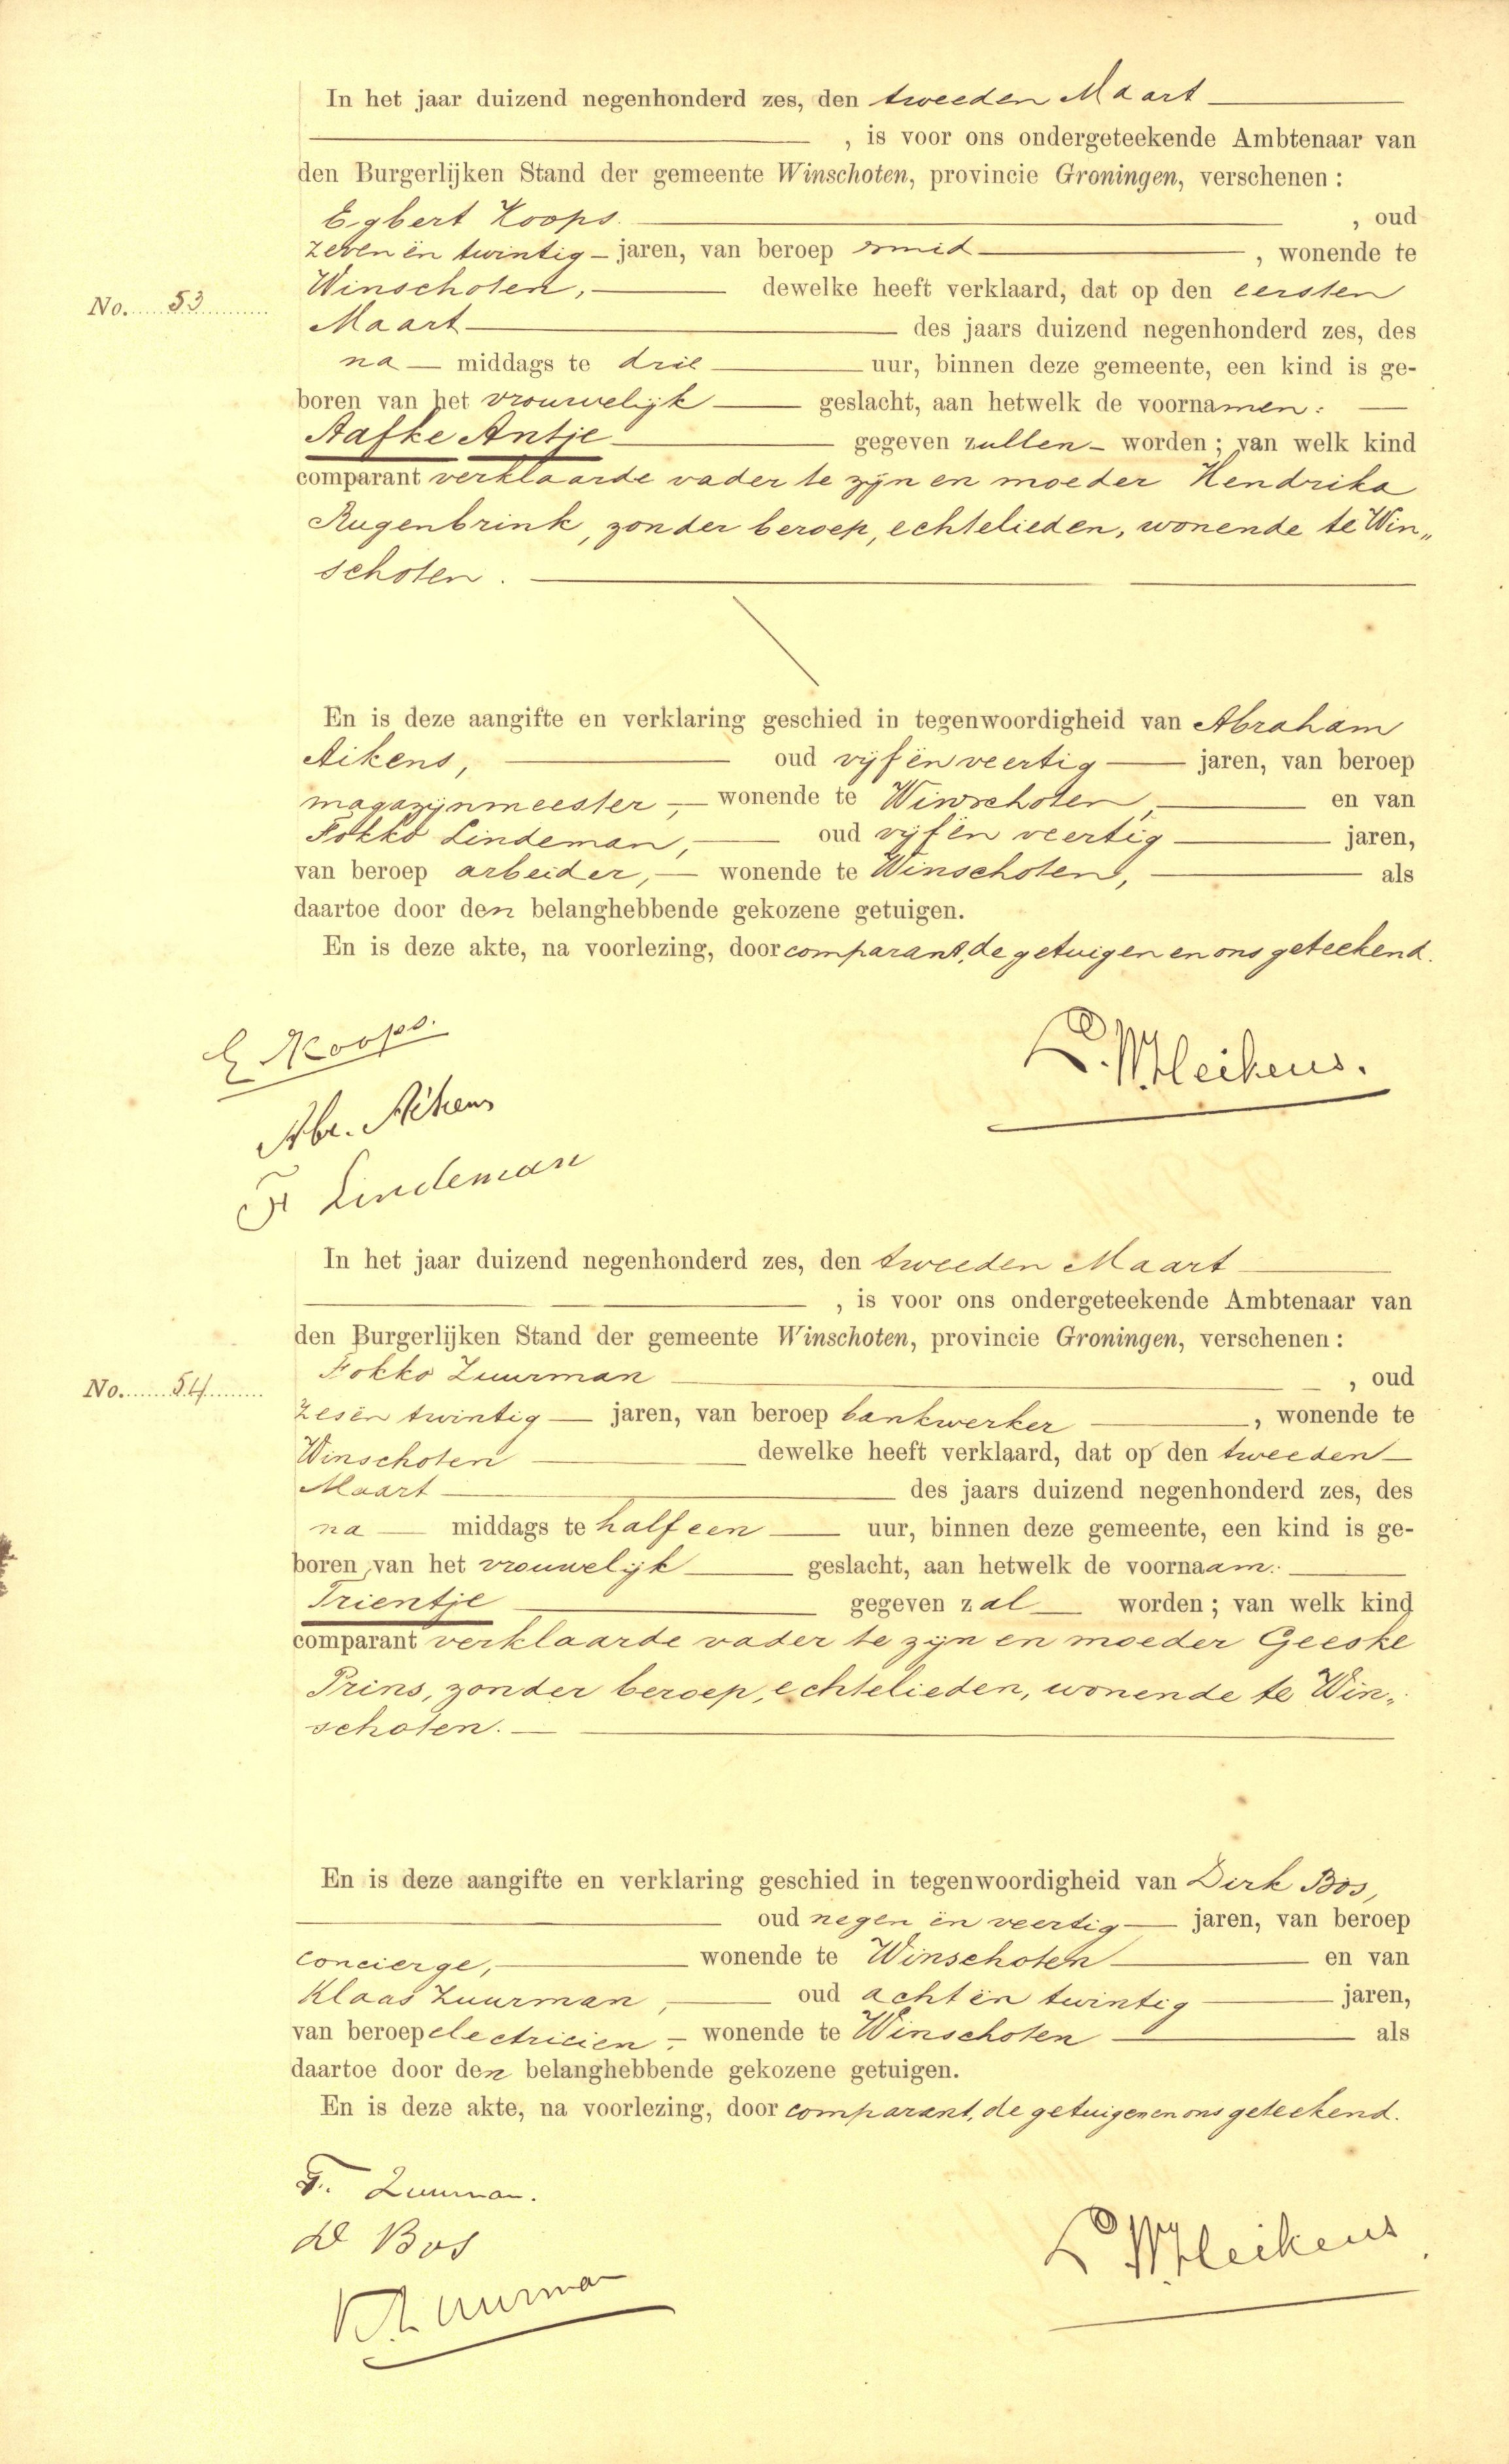 In het jaar duizend negenhonderd zes, den tweeden Maart
, is voor ons ondergeteekende Ambtenaar van
den Burgerlijken Stand der gemeente Winschoten, provincie Groningen, verschenen :
Egbert Koops. , oud
zeven ën twintig jaren, van beroep smid , wonende te
Winschoten, dewelke heeft verklaard, dat op den eersten
No. 53
Maart des jaars duizend negenhonderd zes, des
na middags te drie uur, binnen deze gemeente, een kind is ge-
boren van het vrouwelijk geslacht, aan hetwelk de voornamen :
Aafke Antje gegeven zullen worden ; van welk kind
comparant verklaarde vader te zijn en moeder Hendrika
Rugenbrink, zonder beroep, echtelieden, wonende te Win„
schoten.
En is deze aangifte en verklaring geschied in tegenwoordigheid van Abraham
Aikens, oud vijf ën veertig jaren, van beroep
magazijnmeester, wonende te Winschoten, en van
Fokko Lindeman, oud vijf ën veertig jaren,
van beroep arbeider, wonende te Winschoten, als
daartoe door den belanghebbende gekozene getuigen.
En is deze akte, na voorlezing, door comparant, de getuigen en ons geteekend.
E Koops.
Abr. Aikens
F Lindeman
In het jaar duizend negenhonderd zes, den tweeden Maart
, is voor ons ondergeteekende Ambtenaar van
den Burgerlijken Stand der gemeente Winschoten, provincie Groningen, verschenen :
Fokko Zuurman , oud
No. 54
zes ën twintig jaren, van beroep bankwerker , wonende te
Winschoten dewelke heeft verklaard, dat op den tweeden
Maart des jaars duizend negenhonderd zes, des
na middags te half een uur, binnen deze gemeente, een kind is ge-
boren van het vrouwelijk geslacht, aan hetwelk de voornaam :
Trientje gegeven zal worden ; van welk kind
comparant verklaarde vader te zijn en moeder Geeske
Prins, zonder beroep, echtelieden, wonende te Win„
schoten.
En is deze aangifte en verklaring geschied in tegenwoordigheid van Dirk Bos,
oud negen ën veertig jaren, van beroep
concierge, wonende te Winschoten en van
Klaas Zuurman, oud acht ën twintig jaren,
van beroep electricien, wonende te Winschoten als
daartoe door den belanghebbende gekozene getuigen.
En is deze akte, na voorlezing, door comparant, de getuigen en ons geteekend.
F. Zuurman.
D Bos
K Zuurman